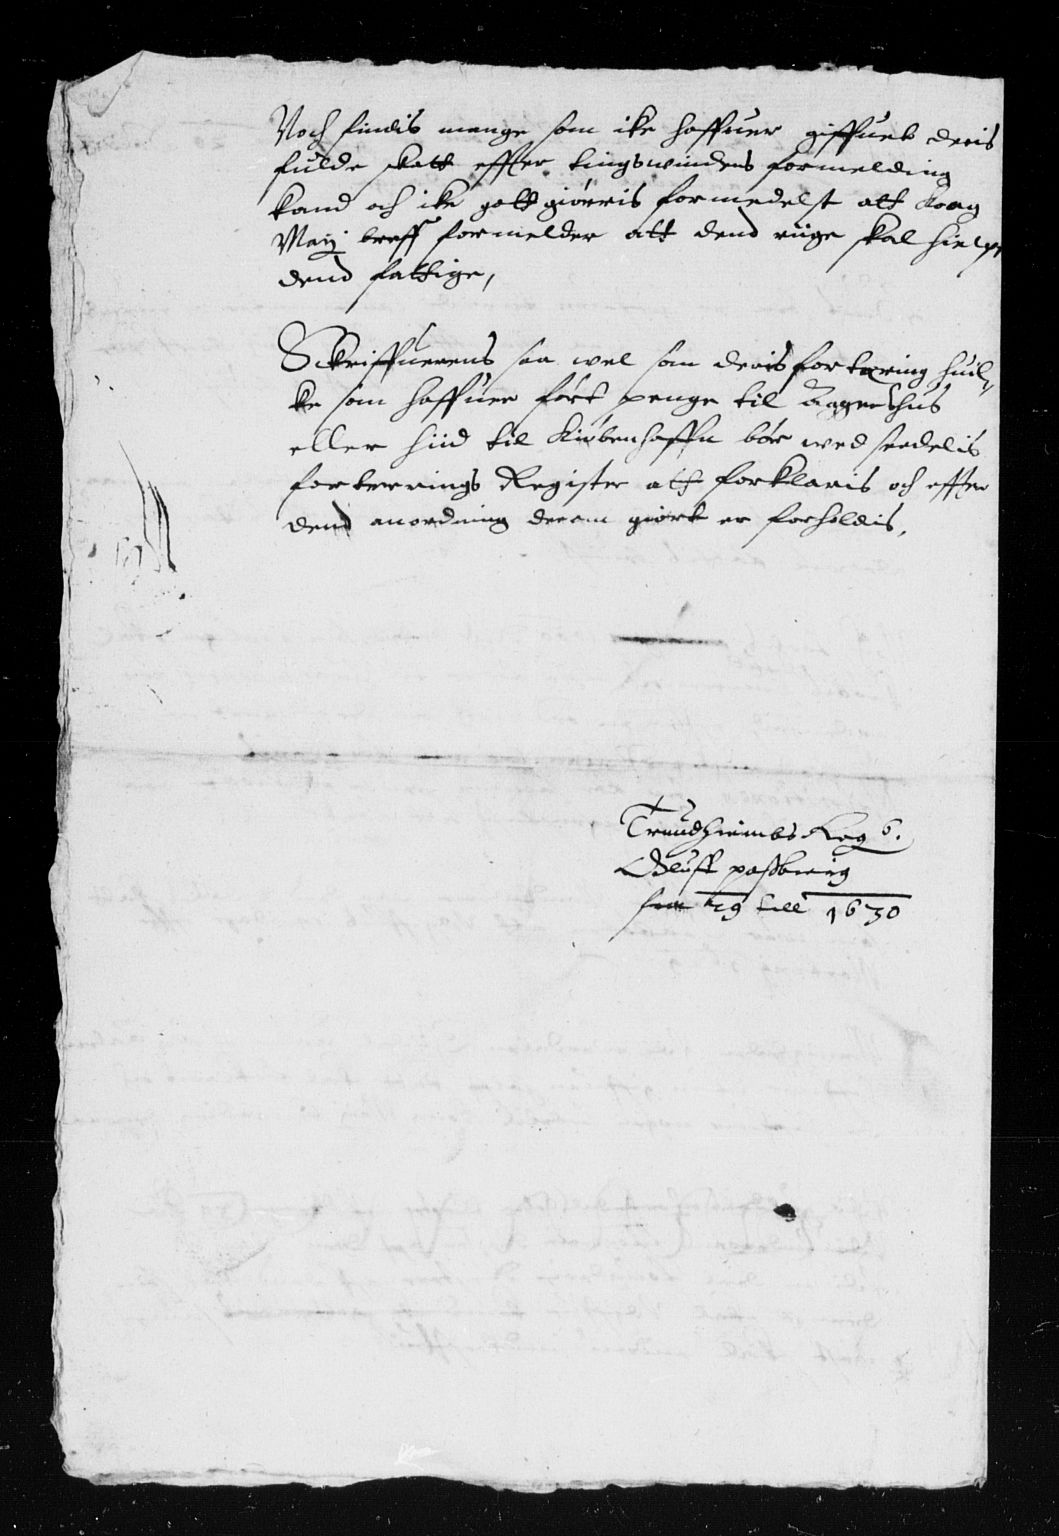 Noch findis mange som ike haffuer giffuet deris
fulde skatt effter tingswindens formelding
kand och ike gott giørris formedelst att Kong
Mayj breff formelder att dend riige skal hielpe
dend fattige,
Skriffuerens saa wel som deris fortæring huil-
ke som haffuer ført penge til Aggershus
eller hiid til Kiøbenhaffn bør wed seedelis
forterrings Register att forklaris och effter
dend anordning derom giort er forholdis.
Trundhiembs Reg
Oluff passbierg
fra 29 till 1630